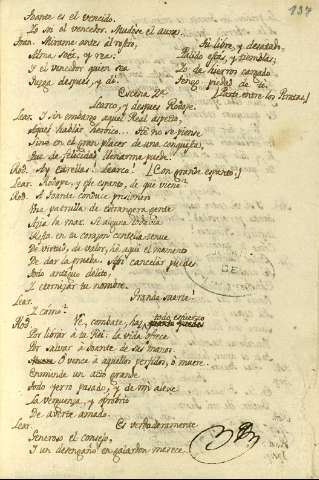 137
Toante es el vencido.
Yo soi el vencedor. Mudòse el aura.
Toan. Mirame antes al rostro,
Alma soez, y rea,
Y el vencedor quien sea
Juzga despues, y dì.
Tù libre, y desatado
Palido estás, y tiemblas;
Yo de hierros cargado
Tengo piedad de ti.
[Parte entre los Piratas.]
Escena 2ª
Learco, y despues Rodope.
Lear. Y sin embargo aquel Real aspecto,
Aquel hablar heroico... Ah no se piense
Sino en el gran placer de una conquista,
Que de felicidad llenarme puede.
Rod. Ay estrellas! Learco! [Con grande espanto.]
Lear. Rodope, y ese espanto, de que viene?
Rod. A Toante conduce prisionero
Una patrulla de estrangera gente
Azia la mar. Si alguna todavia
Resta en tu corazon centella tenue
De virtud, de valor, hè aqui el momento
De dar la prueba. Aqui cancelar puedes
Todo antiguo delito,
Y ennoblecer tu nombre.
Lear. Grande suerte!
Y como?
Rod. Ve, combate, haz todo esfuerzo
Por librar à tu Rei: la vida ofrece
Por salvar à Toante de sus manos.
O vence à aquellos perfidos, ò muere.
Enmiende un acto grande
Todo yerro pasado, y de mi aleve
La verguenza, y oprobrio
De averte amado.
Lear. Es verdaderamente
Generoso el consejo,
Y un desengaño en galardon merece.